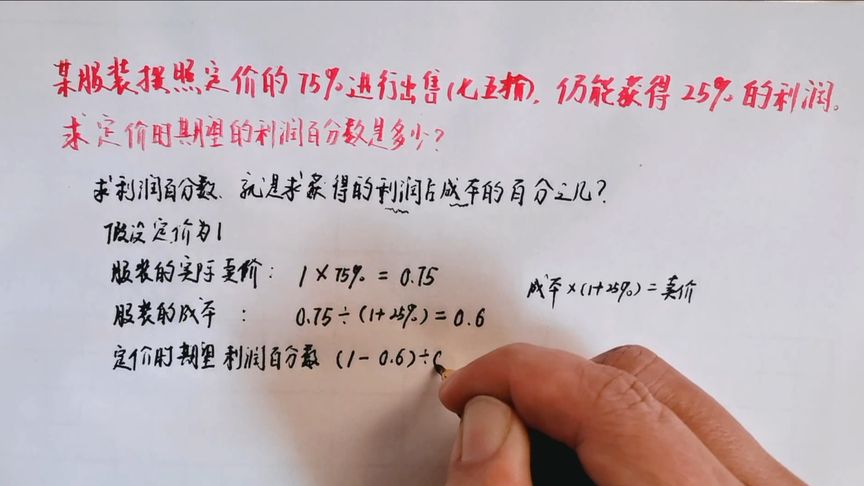 某服装按照定价的75%进行出售(七五折),仍能获得25%的利润。
求定价时期望的利润百分数是多少?
求利润百分数,就是求获得的利润占成本的百分之几?
假设定价为1
服装的实际卖价: 1×75%=0.75
成本×(1+25%)=卖价
服装的成本 : 0.75÷(1+25%)=0.6
定价时期望利润百分数 (1-0.6)÷